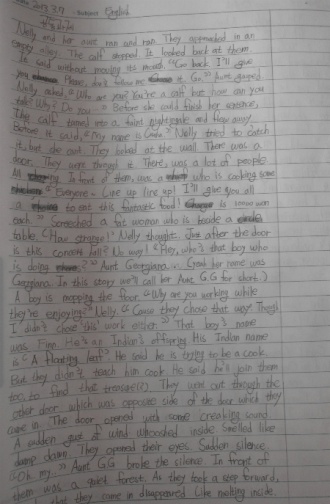 2013. 3. 9 English
Nelly and her aunt ran and ran. They appeared in an
empty alley. The calf stopped. It looked back at them.
It said without moving its mouth. "Go back. I'll give
you Please, don't follow me Go." Aunt gasped.
Nelly asked "Who are you? You're a calf but how can you
talk? Why? Do you " Before she could finish her sentence,
The calf turned into a and flew away.
before it said, "My name is " Nelly tried to catch
it, but she can't. They looked at the wall. There was a
door. They were it. There was a lot of people
In front of them, was a who is cooking some
"Everyone! Line up line up! I'll give you all
a to eat this fantastic food!
each." Screeched a fat woman who is beside a
table. 'How strange!' Nelly thought. Just after the door
is this concert hall? No way! "Hey, who's that boy who
is doing ?" Aunt Georgiana. (Great her name was
Georgiana. In this story we'll call her Aunt G.G for short.)
A boy is mopping the floor. "Why are you working while
they're enjoying?" Nelly. "Cause they chose that way. Though
I didn't chose this work either." That boy's name
was Finn. He's an Indian's offspring. His Indian name
is "A floating leaf". He said he is trying to be a cook.
But they didn't teach him cook. He said he'll join them
too, to find that They went out through the
other door which was opposite side of the door which they
came in. The door opened with some creaking sound.
A sudden gust of wind whooshed inside. Smelled like
damp dawn. They opened their eyes. Sudden silence.
"Oh my." Aunt GG broke the silence. In front of
them was a quiet forest. As they took a step forward,
that they came in disappeared like melting inside.